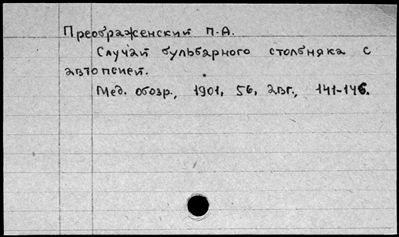 Преображенский П.А.
Случай бульбарного столбняка с
автопсией.
Мед. обозр., 1901, 56, авг., 141-146.